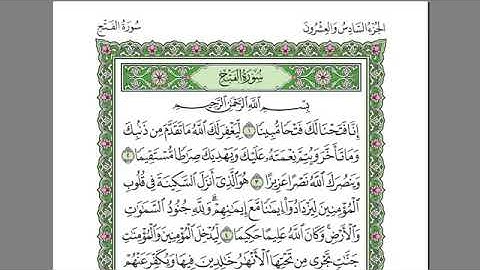 الجزء السادس والعشرون
سورة الفتح
سُورَةُ الفَتْحِ
بِسْمِ اللَّهِ الرَّحْمَٰنِ الرَّحِيمِ
إِنَّا فَتَحْنَا لَكَ فَتْحًا مُّبِينًا ١ لِّيَغْفِرَ لَكَ اللَّهُ مَا تَقَدَّمَ مِن ذَنۢبِكَ
وَمَا تَأَخَّرَ وَيُتِمَّ نِعْمَتَهُ عَلَيْكَ وَيَهْدِيَكَ صِرَٰطًا مُّسْتَقِيمًا ٢
وَيَنصُرَكَ اللَّهُ نَصْرًا عَزِيزًا ٣ هُوَ الَّذِي أَنزَلَ السَّكِينَةَ فِي قُلُوبِ
الْمُؤْمِنِينَ لِيَزْدَادُوا إِيمَٰنًا مَّعَ إِيمَٰنِهِمْ ۗ وَلِلَّهِ جُنُودُ السَّمَٰوَٰتِ
وَالْأَرْضِ ۚ وَكَانَ اللَّهُ عَلِيمًا حَكِيمًا ٤ لِّيُدْخِلَ الْمُؤْمِنِينَ وَالْمُؤْمِنَٰتِ
جَنَّٰتٍ تَجْرِي مِن تَحْتِهَا الْأَنْهَٰرُ خَٰلِدِينَ فِيهَا وَيُكَفِّرَ عَنْهُمْ